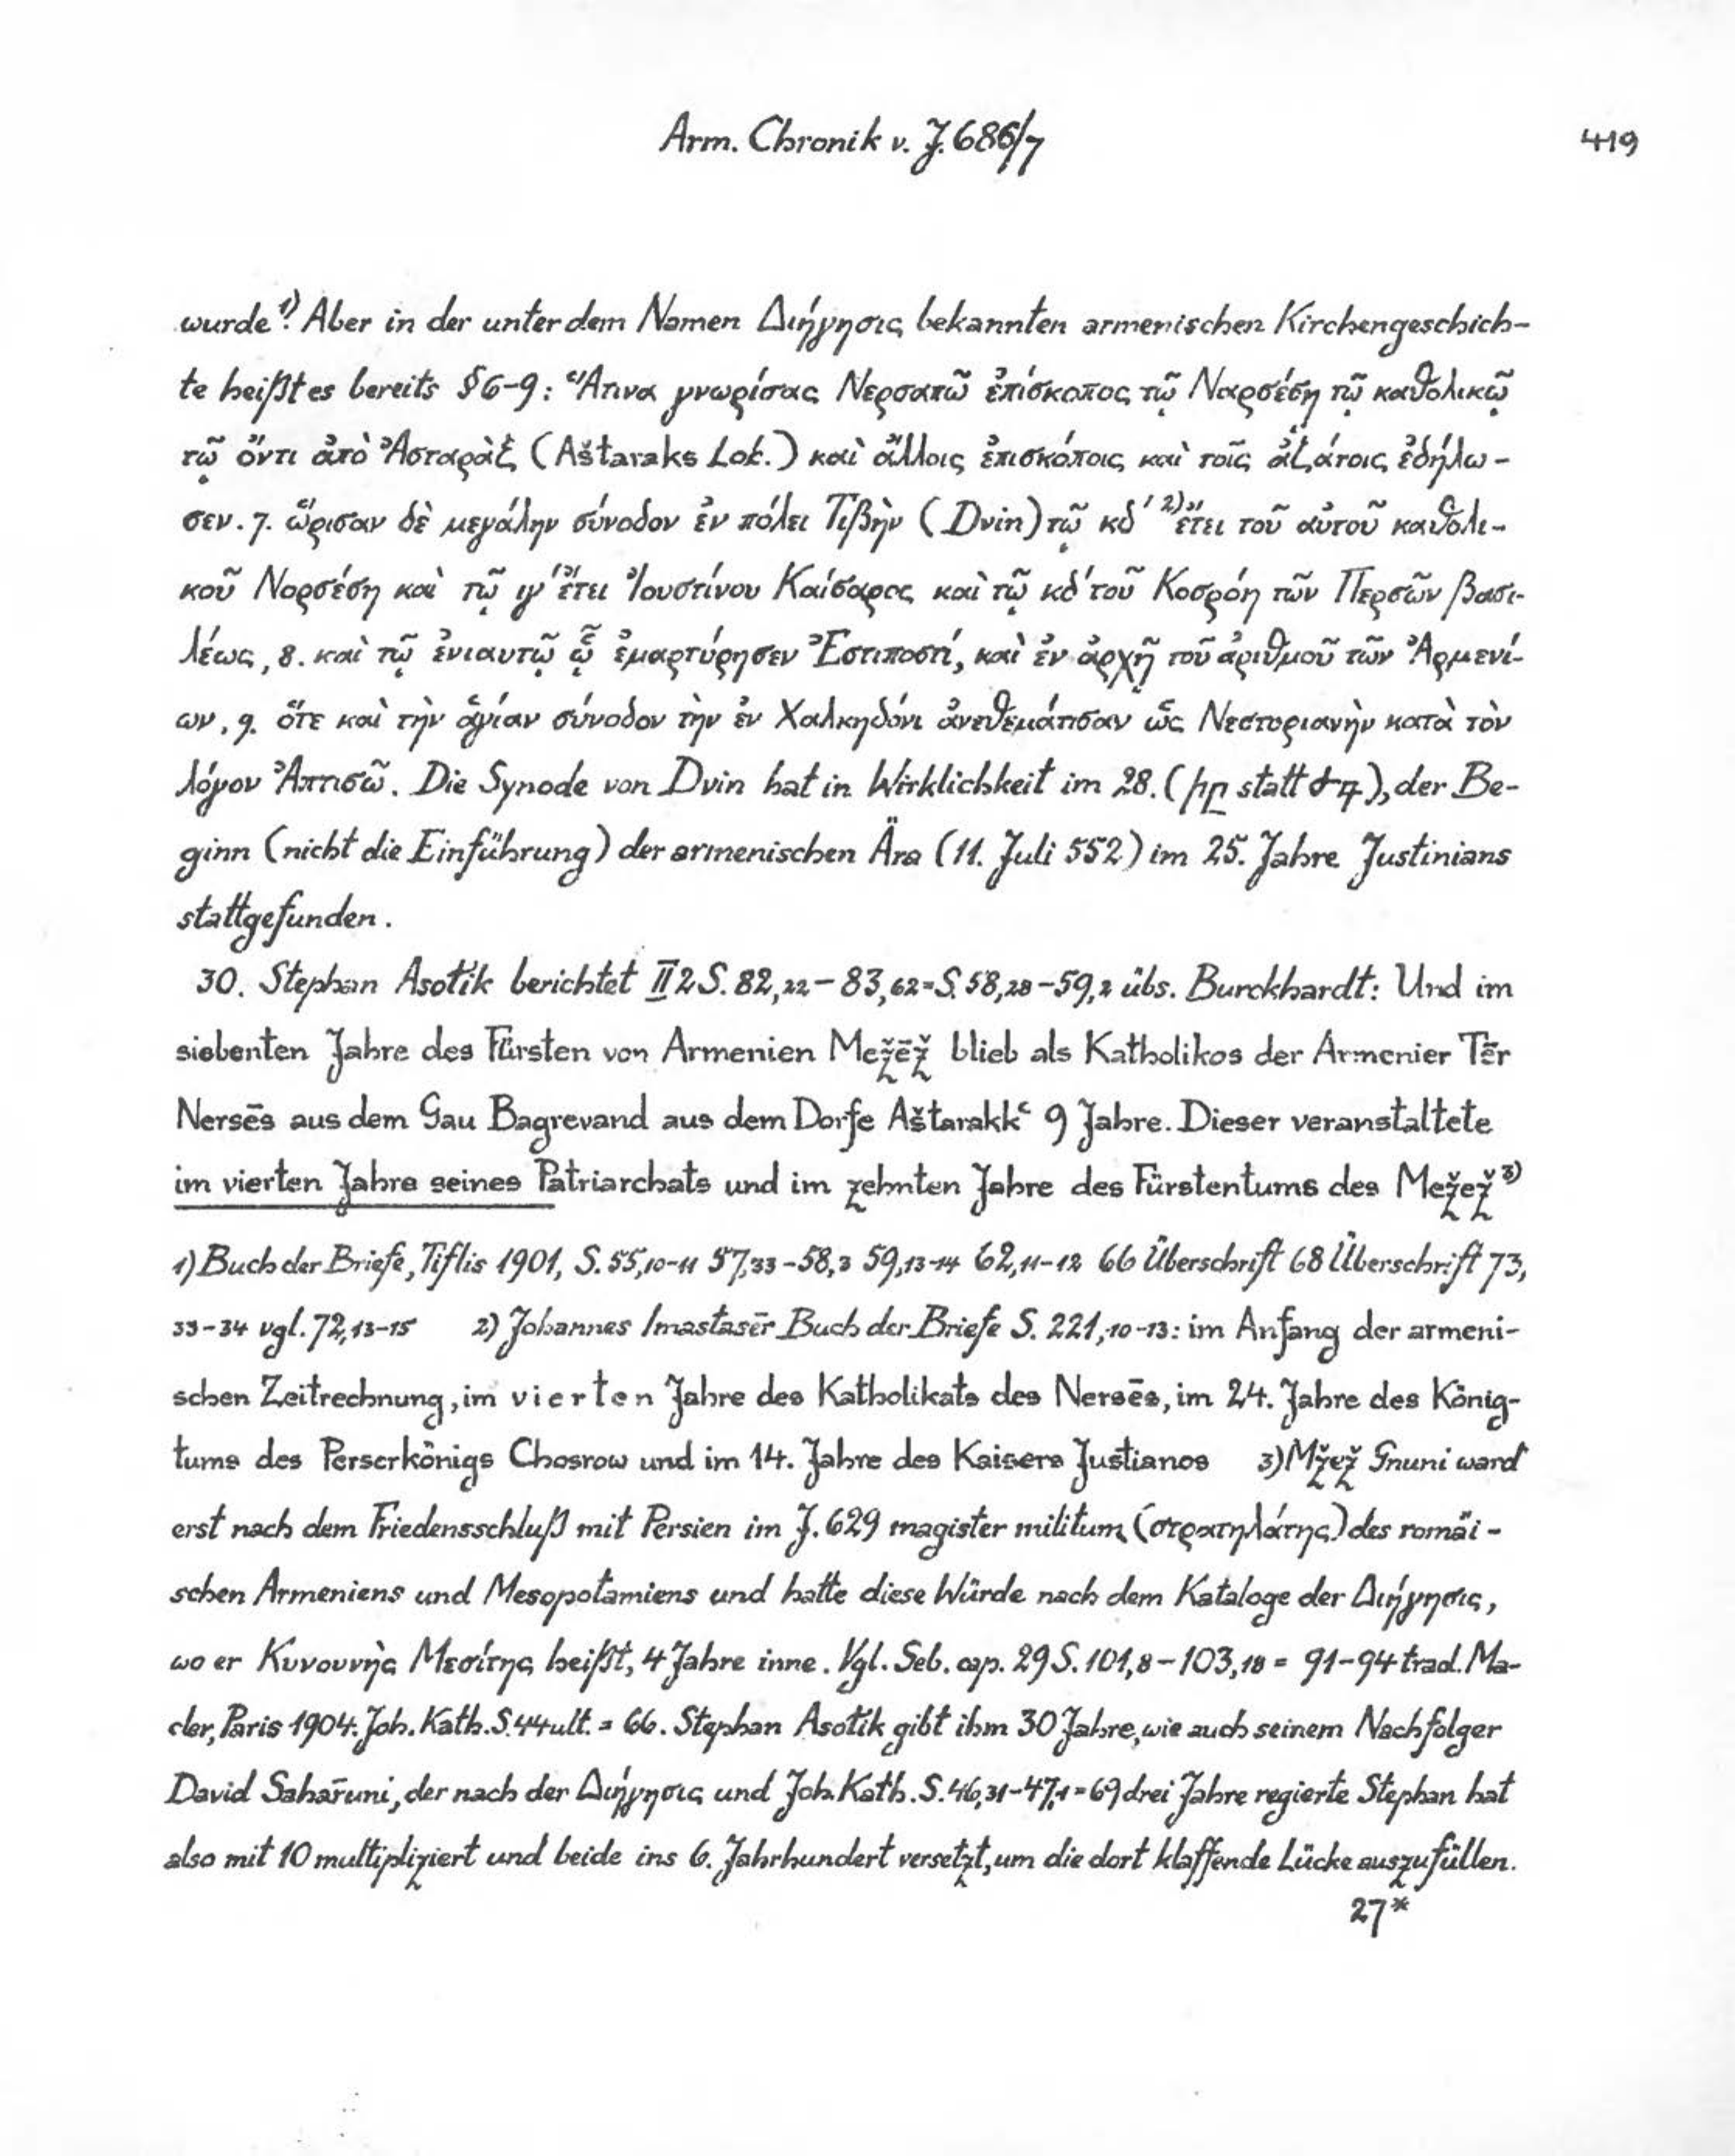 Arm. Chronik v. J. 686/7 419
wurde¹⁾. Aber in der unter dem Namen Διήγησις bekannten armenischen Kirchengeschich-
te heißt es bereits §6-9: Ἅτινα γνωρίσας Νερσαπῶ ἐπίσκοπος τῷ Ναρσέση τῷ καθολικῷ
τῷ ὄντι ἀπὸ Ἀσταρὰξ (Aštaraks Lok.) καὶ ἄλλοις ἐπισκόποις καὶ τοῖς ἀζάτοις ἐδήλω-
σεν. 7. ὥρισαν δὲ μεγάλην σύνοδον ἐν πόλει Τιβὴν (Dvin) τῷ κδ′ ²⁾ ἔτει τοῦ αὐτοῦ καθολι-
κοῦ Νορσέση καὶ τῷ ιγ′ ἔτει Ἰουστίνου Καίσαρος καὶ τῷ κδ′ τοῦ Κοσρόη τῶν Περσῶν βασι-
λέως, 8. καὶ τῷ ἐνιαυτῷ ᾧ ἐμαρτύρησεν Ἐστιποστί, καὶ ἐν ἀρχῇ τοῦ ἀριθμοῦ τῶν Ἀρμενί-
ων, 9. ὅτε καὶ τὴν ἁγίαν σύνοδον τὴν ἐν Χαλκηδόνι ἀνεθεμάτισαν ὡς Νεστοριανὴν κατὰ τὸν
λόγον Ἀπτισῶ. Die Synode von Dvin hat in Wirklichkeit im 28. (իը statt ժդ), der Be-
ginn (nicht die Einführung) der armenischen Ära (11. Juli 552) im 25. Jahre Justinians
stattgefunden.
30. Stephan Asołik berichtet II 2 S. 82,22-83,62=S. 58,28-59,2 übs. Burckhardt: Und im
siebenten Jahre des Fürsten von Armenien Mežēž blieb als Katholikos der Armenier Tēr
Nersēs aus dem Gau Bagrevand aus dem Dorfe Aštarakkʿ 9 Jahre. Dieser veranstaltete
im vierten Jahre seines Patriarchats und im zehnten Jahre des Fürstentums des Mežež³⁾
1) Buch der Briefe, Tiflis 1901, S. 55,10-11 57,33-58,3 59,13-14 62,11-12 66 Überschrift 68 Überschrift 73,
33-34 vgl. 72,13-15 2) Johannes Imastasēr Buch der Briefe S. 221,10-13: im Anfang der armeni-
schen Zeitrechnung, im vierten Jahre des Katholikats des Nersēs, im 24. Jahre des König-
tums des Perserkönigs Chosrow und im 14. Jahre des Kaisers Justianos 3) Mžež Gnuni ward
erst nach dem Friedensschluß mit Persien im J. 629 magister militum (στρατηλάτης) des romäi-
schen Armeniens und Mesopotamiens und hatte diese Würde nach dem Kataloge der Διήγησις,
wo er Κυνουνὴς Μεσίτης heißt, 4 Jahre inne. Vgl. Seb. cap. 29 S. 101,8-103,18 = 91-94 trad. Ma-
cler, Paris 1904. Joh. Kath. S. 44 ult. = 66. Stephan Asołik gibt ihm 30 Jahre, wie auch seinem Nachfolger
David Sahaṙuni, der nach der Διήγησις und Joh. Kath. S. 46,31-47,1=69 drei Jahre regierte Stephan hat
also mit 10 multipliziert und beide ins 6. Jahrhundert versetzt, um die dort klaffende Lücke auszufüllen.
27*